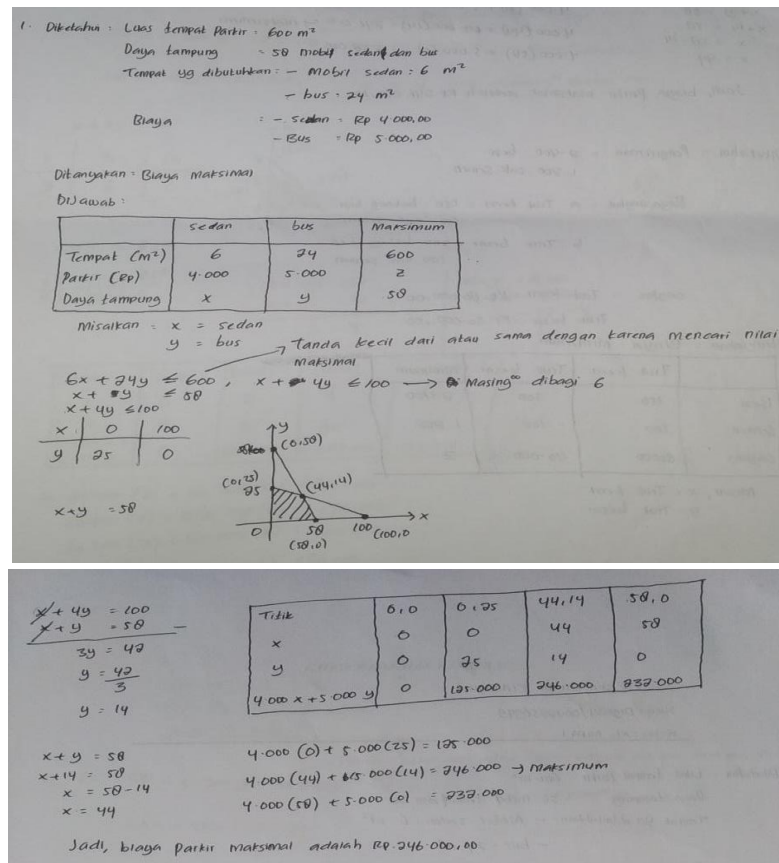 1. Diketahui : Luas tempat Parkir : 600 m²
Daya tampung = 58 mobil sedan dan bus
Tempat yg dibutuhkan : - Mobil sedan : 6 m²
- bus : 24 m²
Biaya : - sedan = Rp 4 000,00
- Bus = Rp 5.000,00
Ditanyakan : Biaya maksimal
Dijawab :
sedan bus Maksimum
Tempat (m²) 6 24 600
Parkir (Rp) 4.000 5.000 z
Daya tampung x y 58
Misalkan : x = sedan
y = bus
Tanda kecil dari atau sama dengan karena mencari nilai
maksimal
6x + 24y ≤ 600 , x + 4y ≤ 100 → Masing² dibagi 6
x + y ≤ 58
x + 4y ≤ 100
x 0 100
y 25 0
x+y = 58
y
(0,58)
(0,25)
25
(44,14)
0 58 100 x
(58,0) (100,0
x + 4y = 100
x + y = 58 -
3y = 42
y = 42/3
y = 14
x + y = 58
x + 14 = 58
x = 58 - 14
x = 44
Titik 0,0 0,25 44,14 58,0
x 0 0 44 58
y 0 25 14 0
4.000 x + 5.000 y 0 125.000 246.000 232.000
4.000 (0) + 5.000 (25) = 125.000
4.000 (44) + 5.000 (14) = 246.000 → maksimum
4.000 (58) + 5.000 (0) = 232.000
Jadi, biaya Parkir maksimal adalah Rp. 246.000,00